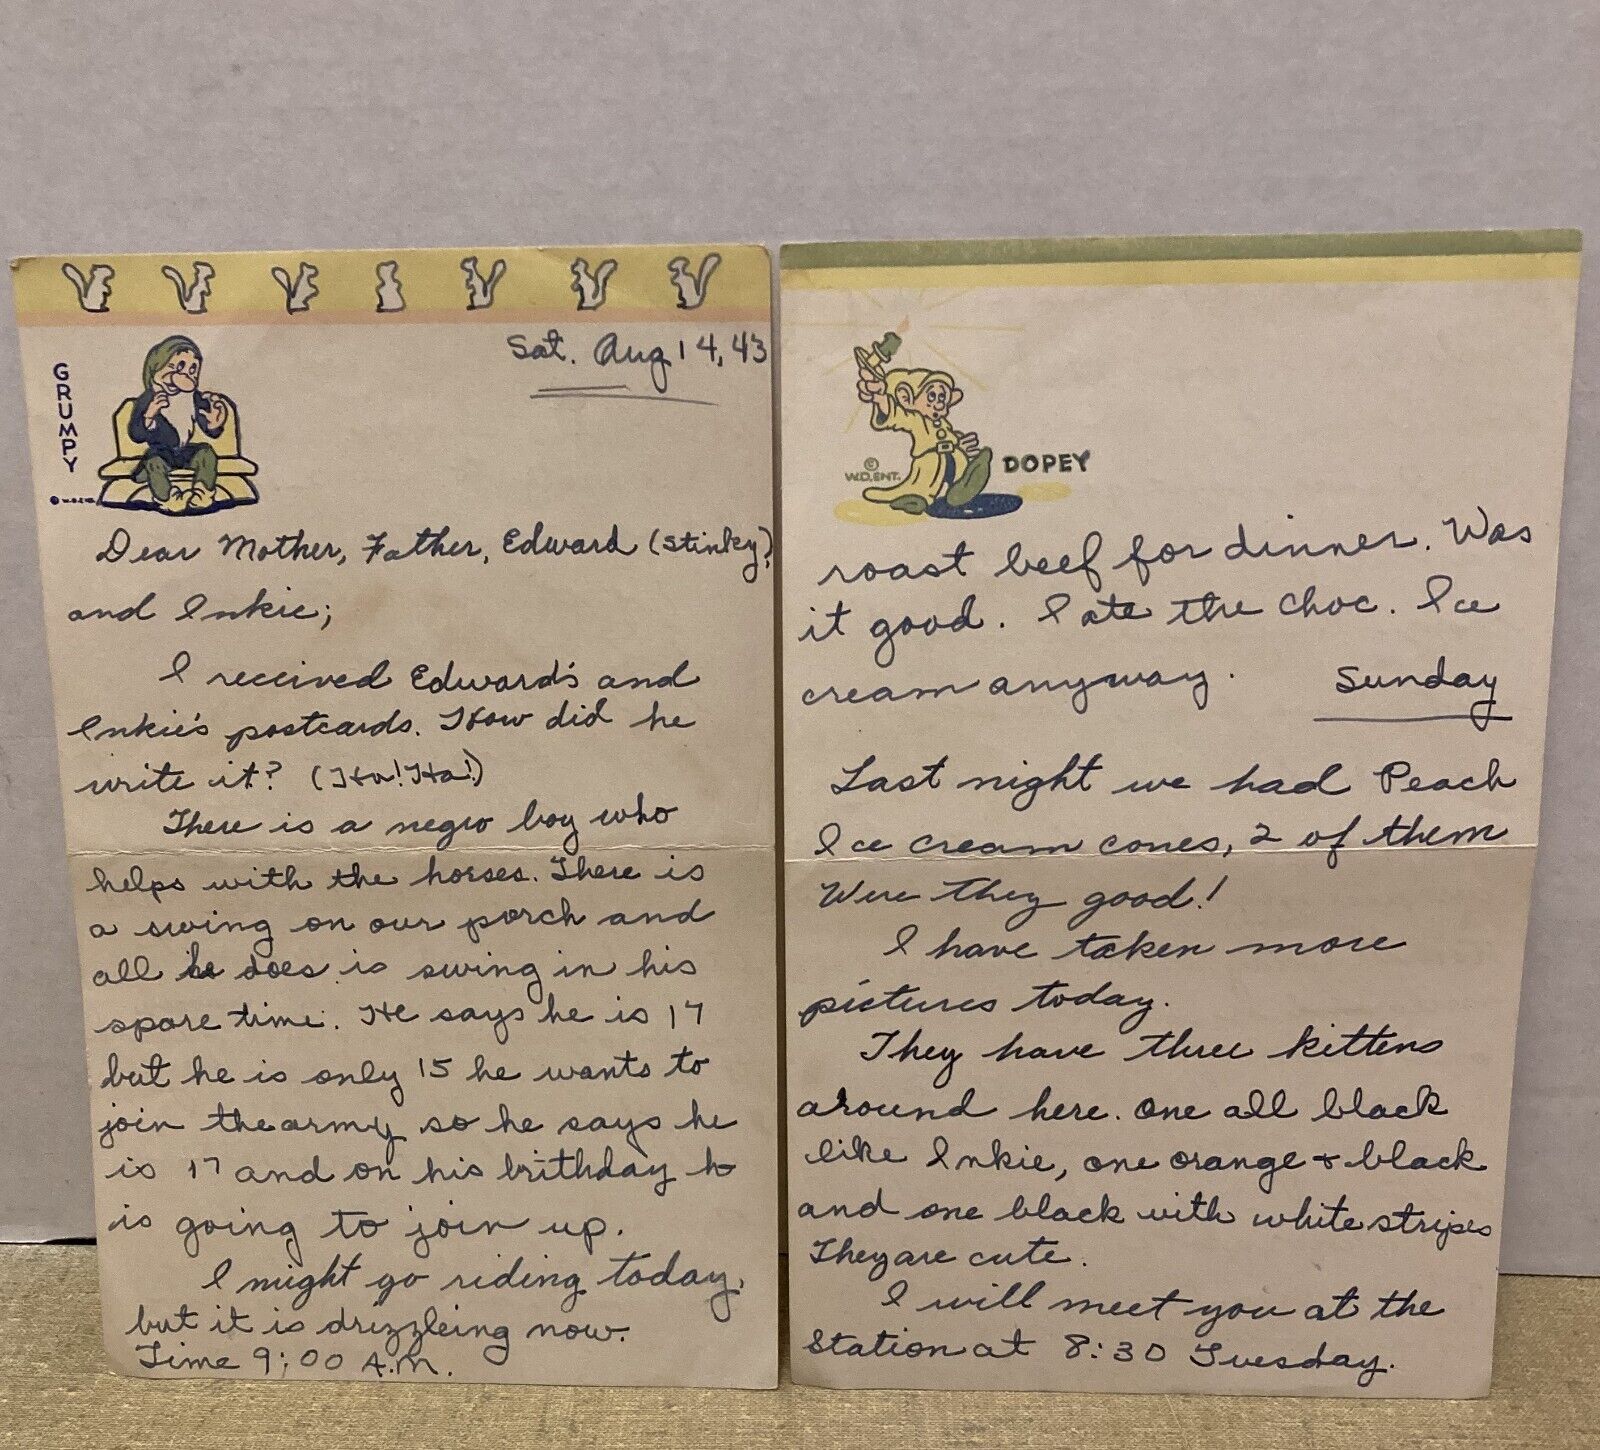 Sat. Aug 14, 43
GRUMPY
Dear Mother, Father, Edward (Stinky),
and Inkie;
I received Edward's and
Inkie's postcards. How did he
write it? (Ha! Ha!)
There is a negro boy who
helps with the horses. There is
a swing on our porch and
all he does is swing in his
spare time. He says he is 17
but he is only 15 he wants to
join the army so he says he
is 17 and on his brithday h
is going to join up.
I might go riding today,
but it is drizzleing now.
Time 9:00 A.M.
© W.D.ENT.
DOPEY
roast beef for dinner. Was
it good. I ate the choc. Ice
cream anyway.
Sunday
Last night we had Peach
Ice cream cones, 2 of them
Were they good!
I have taken more
pictures today.
They have three kittens
around here. One all black
like Inkie, one orange + black
and one black with white stripes
They are cute.
I will meet you at the
Station at 8:30 Tuesday.